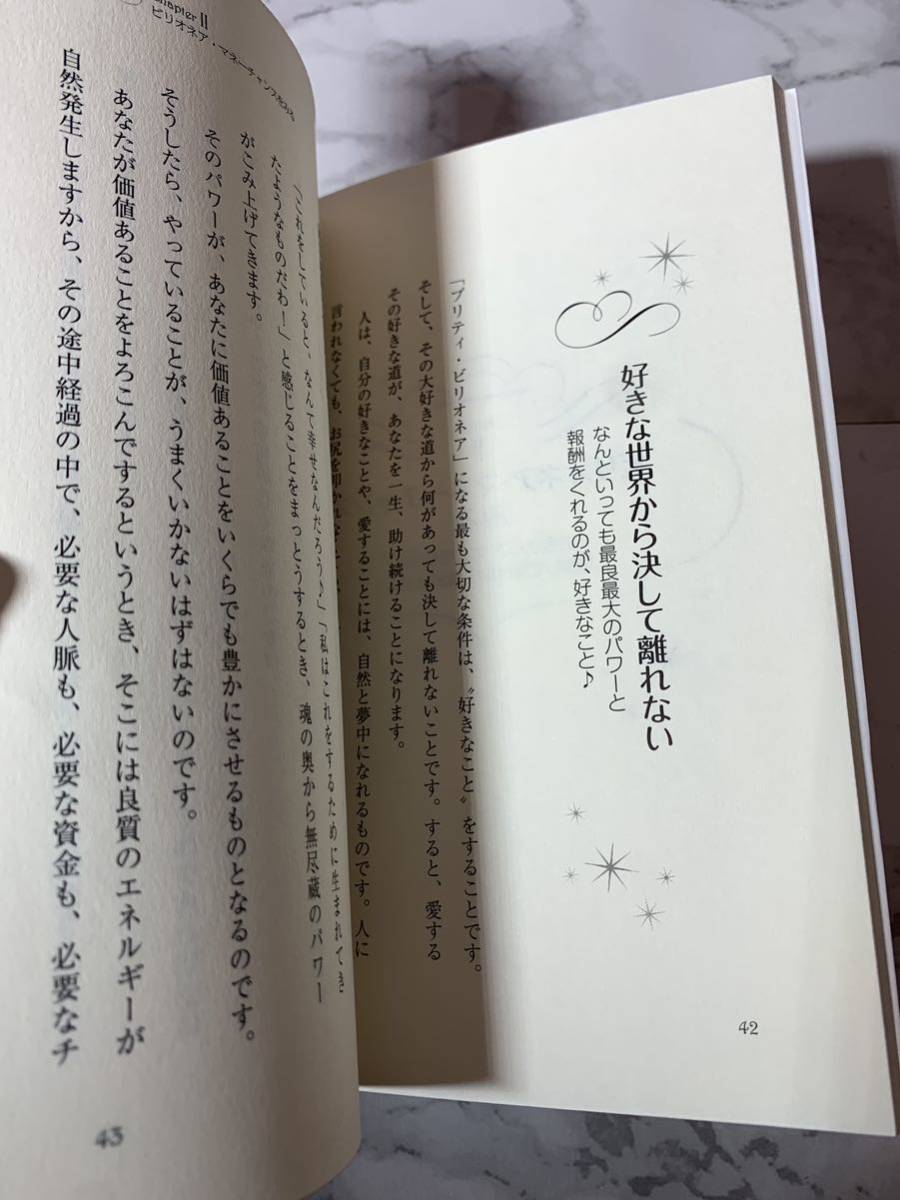 好きな世界から決して離れない
なんといっても最良最大のパワーと
報酬をくれるのが、好きなこと♪
「プリティ・ビリオネア」になる最も大切な条件は、〝好きなこと〟をすることです。
そして、その大好きな道から何があっても決して離れないことです。すると、愛する
その好きな道が、あなたを一生、助け続けることになります。
人は、自分の好きなことや、愛することには、自然と夢中になれるものです。人に
言われなくても、お尻を叩かれな
42
Chapter II
ビリオネア・マネーチャンスをつかむ
「これをしていると、なんて幸せなんだろう♪」「私はこれをするために生まれてき
たようなものだわ！」と感じることをまっとうするとき、魂の奥から無尽蔵のパワー
がこみ上げてきます。
そのパワーが、あなたに価値あることをいくらでも豊かにさせるものとなるのです。
そうしたら、やっていることが、うまくいかないはずはないのです。
あなたが価値あることをよろこんでするというとき、そこには良質のエネルギーが
自然発生しますから、その途中経過の中で、必要な人脈も、必要な資金も、必要なチ
43